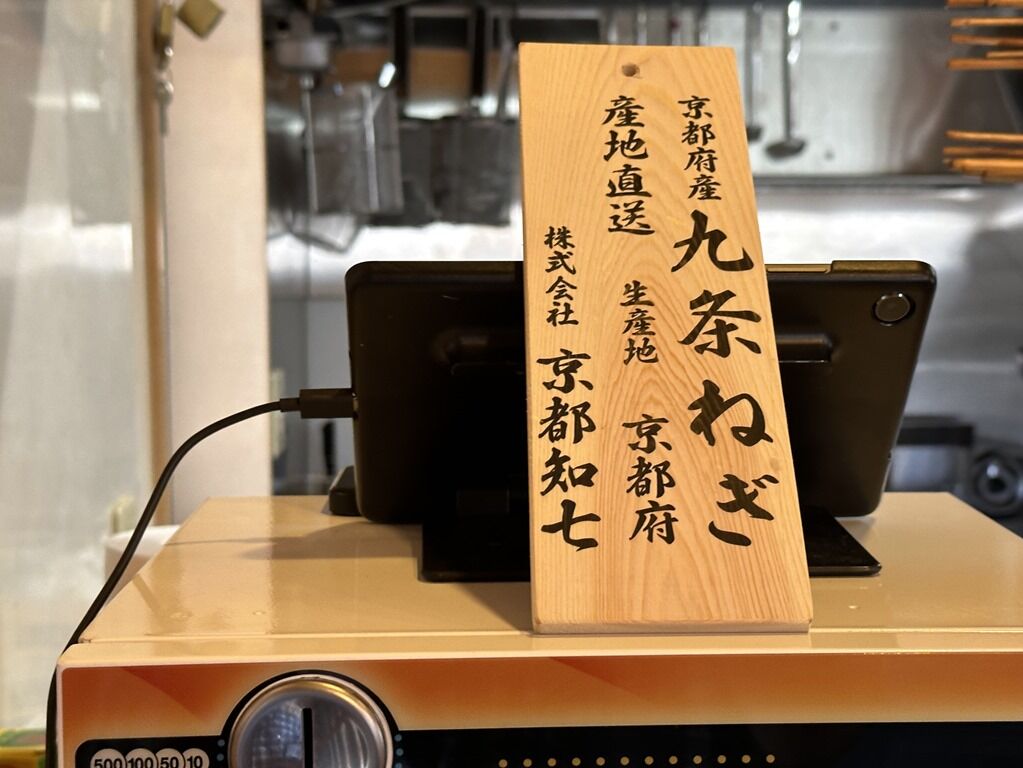 京都府産 九条ねぎ
産地直送 生産地 京都府
株式会社 京都知七
500 100 50 10